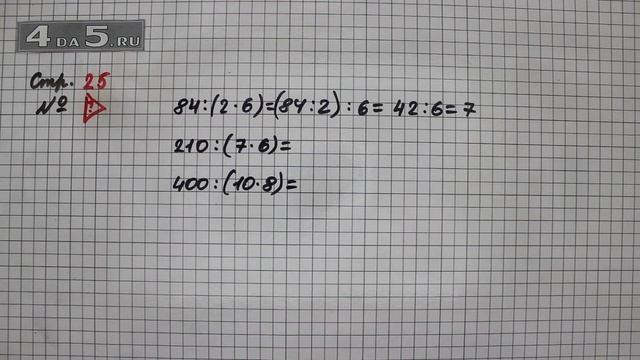 4 DA 5.RU
Стр. 25
№ ?
84:(2·6)=(84:2):6=42:6=7
210:(7·6)=
400:(10·8)=